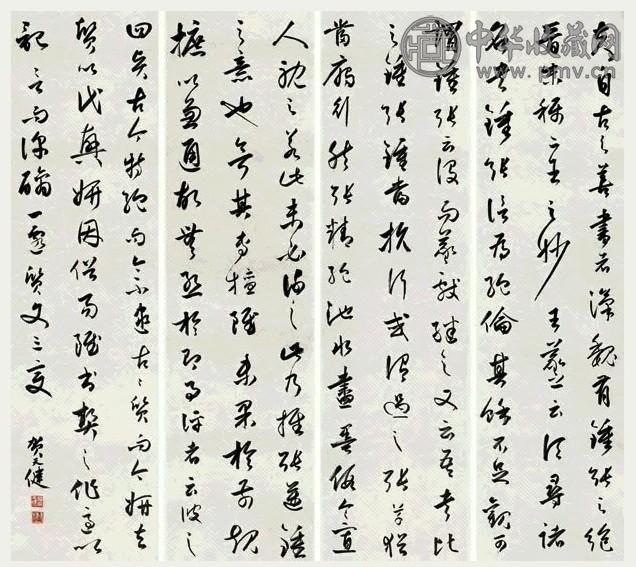 中华收藏网
夫自古之善書者漢魏有鍾張之絕
晉末稱二王之妙王羲之云頃尋諸
名書鍾張信為絕倫其餘不足觀可
謂鍾張云沒而羲獻繼之又云吾書比
之鍾張鍾當抗行或謂過之張草猶
當雁行然張精熟池水盡墨假令寡
人耽之若此未必謝之此乃推張邁鍾
之意也考其專擅雖未果於前規
摭以兼通故無慚於即事評者云彼之
四賢古今特絕而今不逮古古質而今妍夫
質以代興妍因俗易雖書契之作適以
記言而淳醨一遷質文三變
賀天健